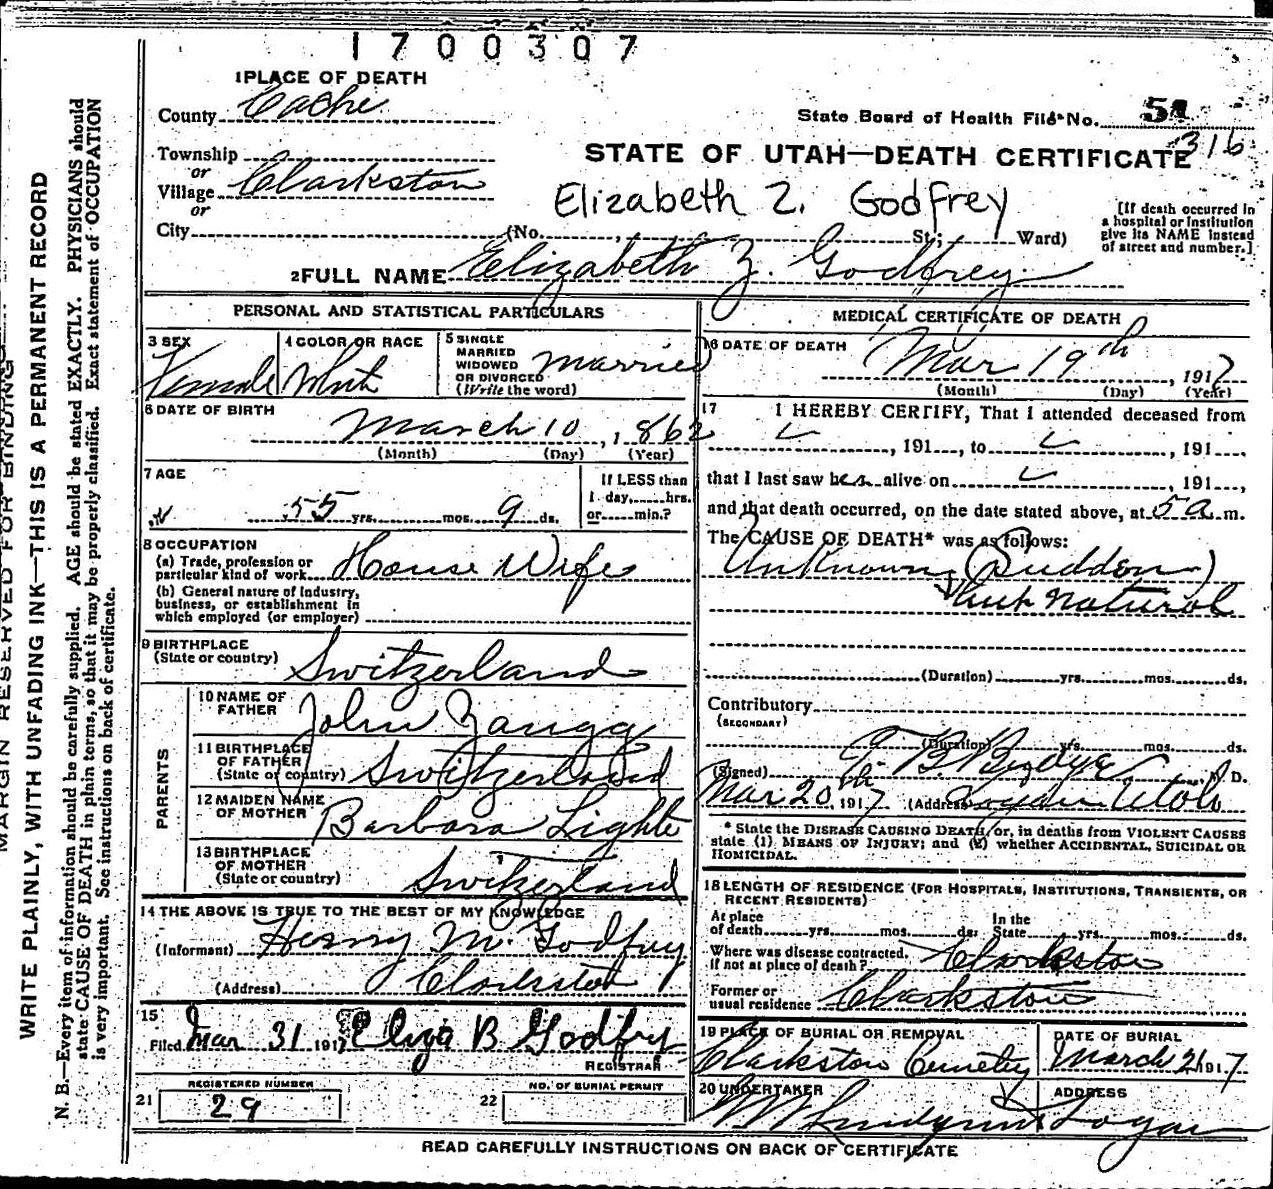 1700307
1 PLACE OF DEATH
County Cache
State Board of Health File No. 51
316
Township
or
Village Clarkston
or
City (No. , St.; Ward)
STATE OF UTAH—DEATH CERTIFICATE
Elizabeth Z. Godfrey
[If death occurred in
a hospital or institution
give its NAME instead
of street and number.]
2 FULL NAME Elizabeth Z. Godfrey
PERSONAL AND STATISTICAL PARTICULARS
3 SEX
Female
4 COLOR OR RACE
White
5 SINGLE
MARRIED
WIDOWED
OR DIVORCED
(Write the word)
Married
6 DATE OF BIRTH
March 10, 1862
(Month) (Day) (Year)
7 AGE
55 yrs. mos. 9 ds.
If LESS than
1 day, hrs.
or min.?
8 OCCUPATION
(a) Trade, profession or
particular kind of work House Wife
(b) General nature of industry,
business, or establishment in
which employed (or employer)
9 BIRTHPLACE
(State or country) Switzerland
PARENTS
10 NAME OF
FATHER John Zaugg
11 BIRTHPLACE
OF FATHER
(State or country) Switzerland
12 MAIDEN NAME
OF MOTHER Barbara Lighte
13 BIRTHPLACE
OF MOTHER
(State or country) Switzerland
14 THE ABOVE IS TRUE TO THE BEST OF MY KNOWLEDGE
(Informant) Henry M. Godfrey
(Address) Clarkston
15
Filed Mar 31 1917 Eliza B Godfrey
REGISTRAR
REGISTERED NUMBER
21 29
NO. OF BURIAL PERMIT
22
MEDICAL CERTIFICATE OF DEATH
16 DATE OF DEATH
Mar 19th, 1917
(Month) (Day) (Year)
17 I HEREBY CERTIFY, That I attended deceased from
, 191 , to , 191 ,
that I last saw her alive on , 191 ,
and that death occurred, on the date stated above, at 5 a m.
The CAUSE OF DEATH* was as follows:
Unknown (Sudden)
but natural
(Duration) yrs. mos. ds.
Contributory
(SECONDARY)
(Duration) yrs. mos. ds.
(Signed) T. B. Budge M. D.
Mar 20th, 1917 (Address) Logan Utah
* State the DISEASE CAUSING DEATH, or, in deaths from VIOLENT CAUSES
state (1) MEANS OF INJURY; and (2) whether ACCIDENTAL, SUICIDAL OR
HOMICIDAL.
18 LENGTH OF RESIDENCE (FOR HOSPITALS, INSTITUTIONS, TRANSIENTS, OR
RECENT RESIDENTS)
At place
of death yrs. mos. ds.
In the
State yrs. mos. ds.
Where was disease contracted,
if not at place of death? Clarkston
Former or
usual residence Clarkston
19 PLACE OF BURIAL OR REMOVAL
Clarkston Cemetery
DATE OF BURIAL
March 21 1917
20 UNDERTAKER
ADDRESS
Logan
READ CAREFULLY INSTRUCTIONS ON BACK OF CERTIFICATE
MARGIN RESERVED FOR BINDING
WRITE PLAINLY, WITH UNFADING INK—THIS IS A PERMANENT RECORD
N. B.—Every item of information should be carefully supplied. AGE should be stated EXACTLY. PHYSICIANS should
state CAUSE OF DEATH in plain terms, so that it may be properly classified. Exact statement of OCCUPATION
is very important. See instructions on back of certificate.